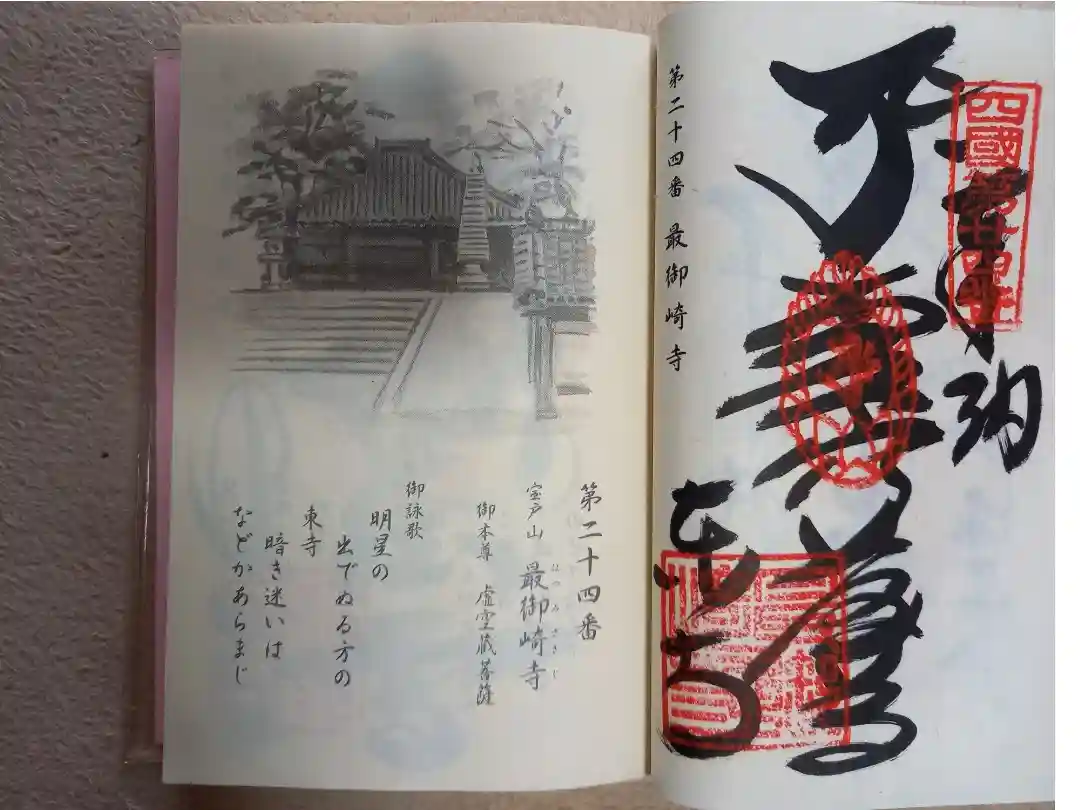 奉納
四國第廿四番
東寺
第二十四番 最御崎寺
第二十四番
ほつみさきじ
室戸山 最御崎寺
御本尊 虚空蔵菩薩
御詠歌
明星の
出でぬる方の
東寺
暗き迷いは
などかあらまじ